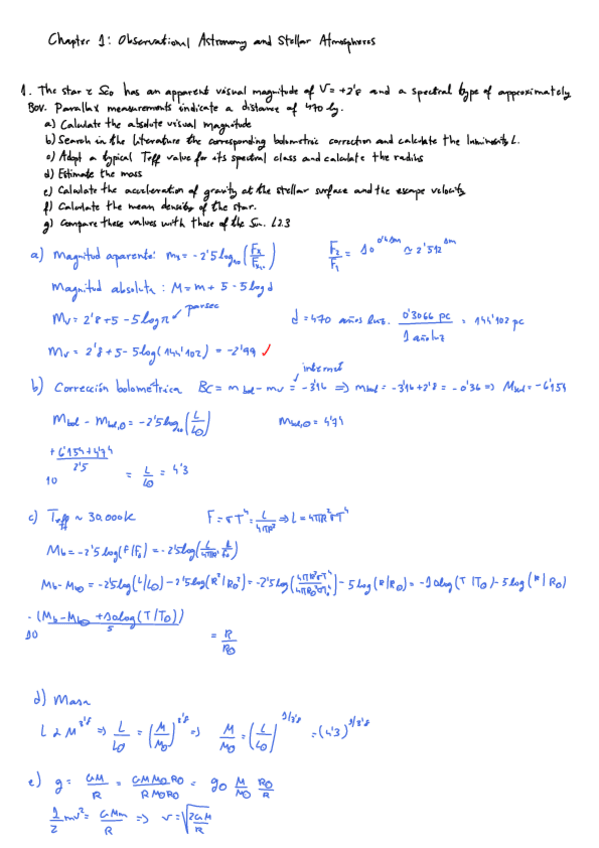 Chapter 1: Observational Astronomy and Stellar Atmospheres
1. The star τ Sco has an apparent visual magnitude of V = +2'8 and a spectral type of approximately
B0V. Parallax measurements indicate a distance of 470 ly.
a) Calculate the absolute visual magnitude
b) Search in the literature the corresponding bolometric correction and calculate the luminosity L.
c) Adopt a typical Teff value for its spectral class and calculate the radius
d) Estimate the mass
e) Calculate the acceleration of gravity at the stellar surface and the escape velocity
f) Calculate the mean density of the star.
g) Compare these values with those of the Sun.
a) Magnitud aparente: = -2'5 log₁₀ F₂/F₁ = 10^0'4Δm ≃ 2'512^Δm
Magnitud absoluta: M = m + 5 - 5 log d
parsec
Mv = 2'8 + 5 - 5 log d = 470 años luz · 0'3066 pc / 1 año luz = 144'102 pc
Mv = 2'8 + 5 - 5 log (144'102) = -2'99 ✓
internet
b) Corrección bolométrica BC = m bol - mv = -3'16 => mbol = -3'16 + 2'8 = -0'36 => Mbol = -6'154
Mbol - Mbol,⊙ = -2'5 log₁₀ (L/L⊙) Mbol,⊙ = 4'74
10^((+6'154+4'74)/2'5) = L/L⊙ = 4'3
c) Teff ~ 30.000K F = σT⁴ = L/4πR² => L = 4πR²σT⁴
Mb = -2'5 log (F/F₀) = -2'5 log
Mb - Mb⊙ = -2'5 log (L/L⊙) - 2'5 log (R²/R⊙²) = -2'5 log (4πR²σT⁴/4πR⊙²σT⊙⁴) - 5 log (R/R⊙) = -10 log (T/T⊙) - 5 log (R/R⊙)
10^(-(Mb - Mb⊙ + 10 log (T/T⊙))/5) = R/R⊙
d) Masa
L α M^3'8 => L/L⊙ = (M/M⊙)^3'8 => M/M⊙ = (L/L⊙)^1/3'8 = (4'3)^1/3'8
e) g = GM/R = GMM⊙R⊙/RM⊙R⊙ = g⊙ M/M⊙ R⊙/R
1/2 mv² = GMm/R => v = √(2GM/R)